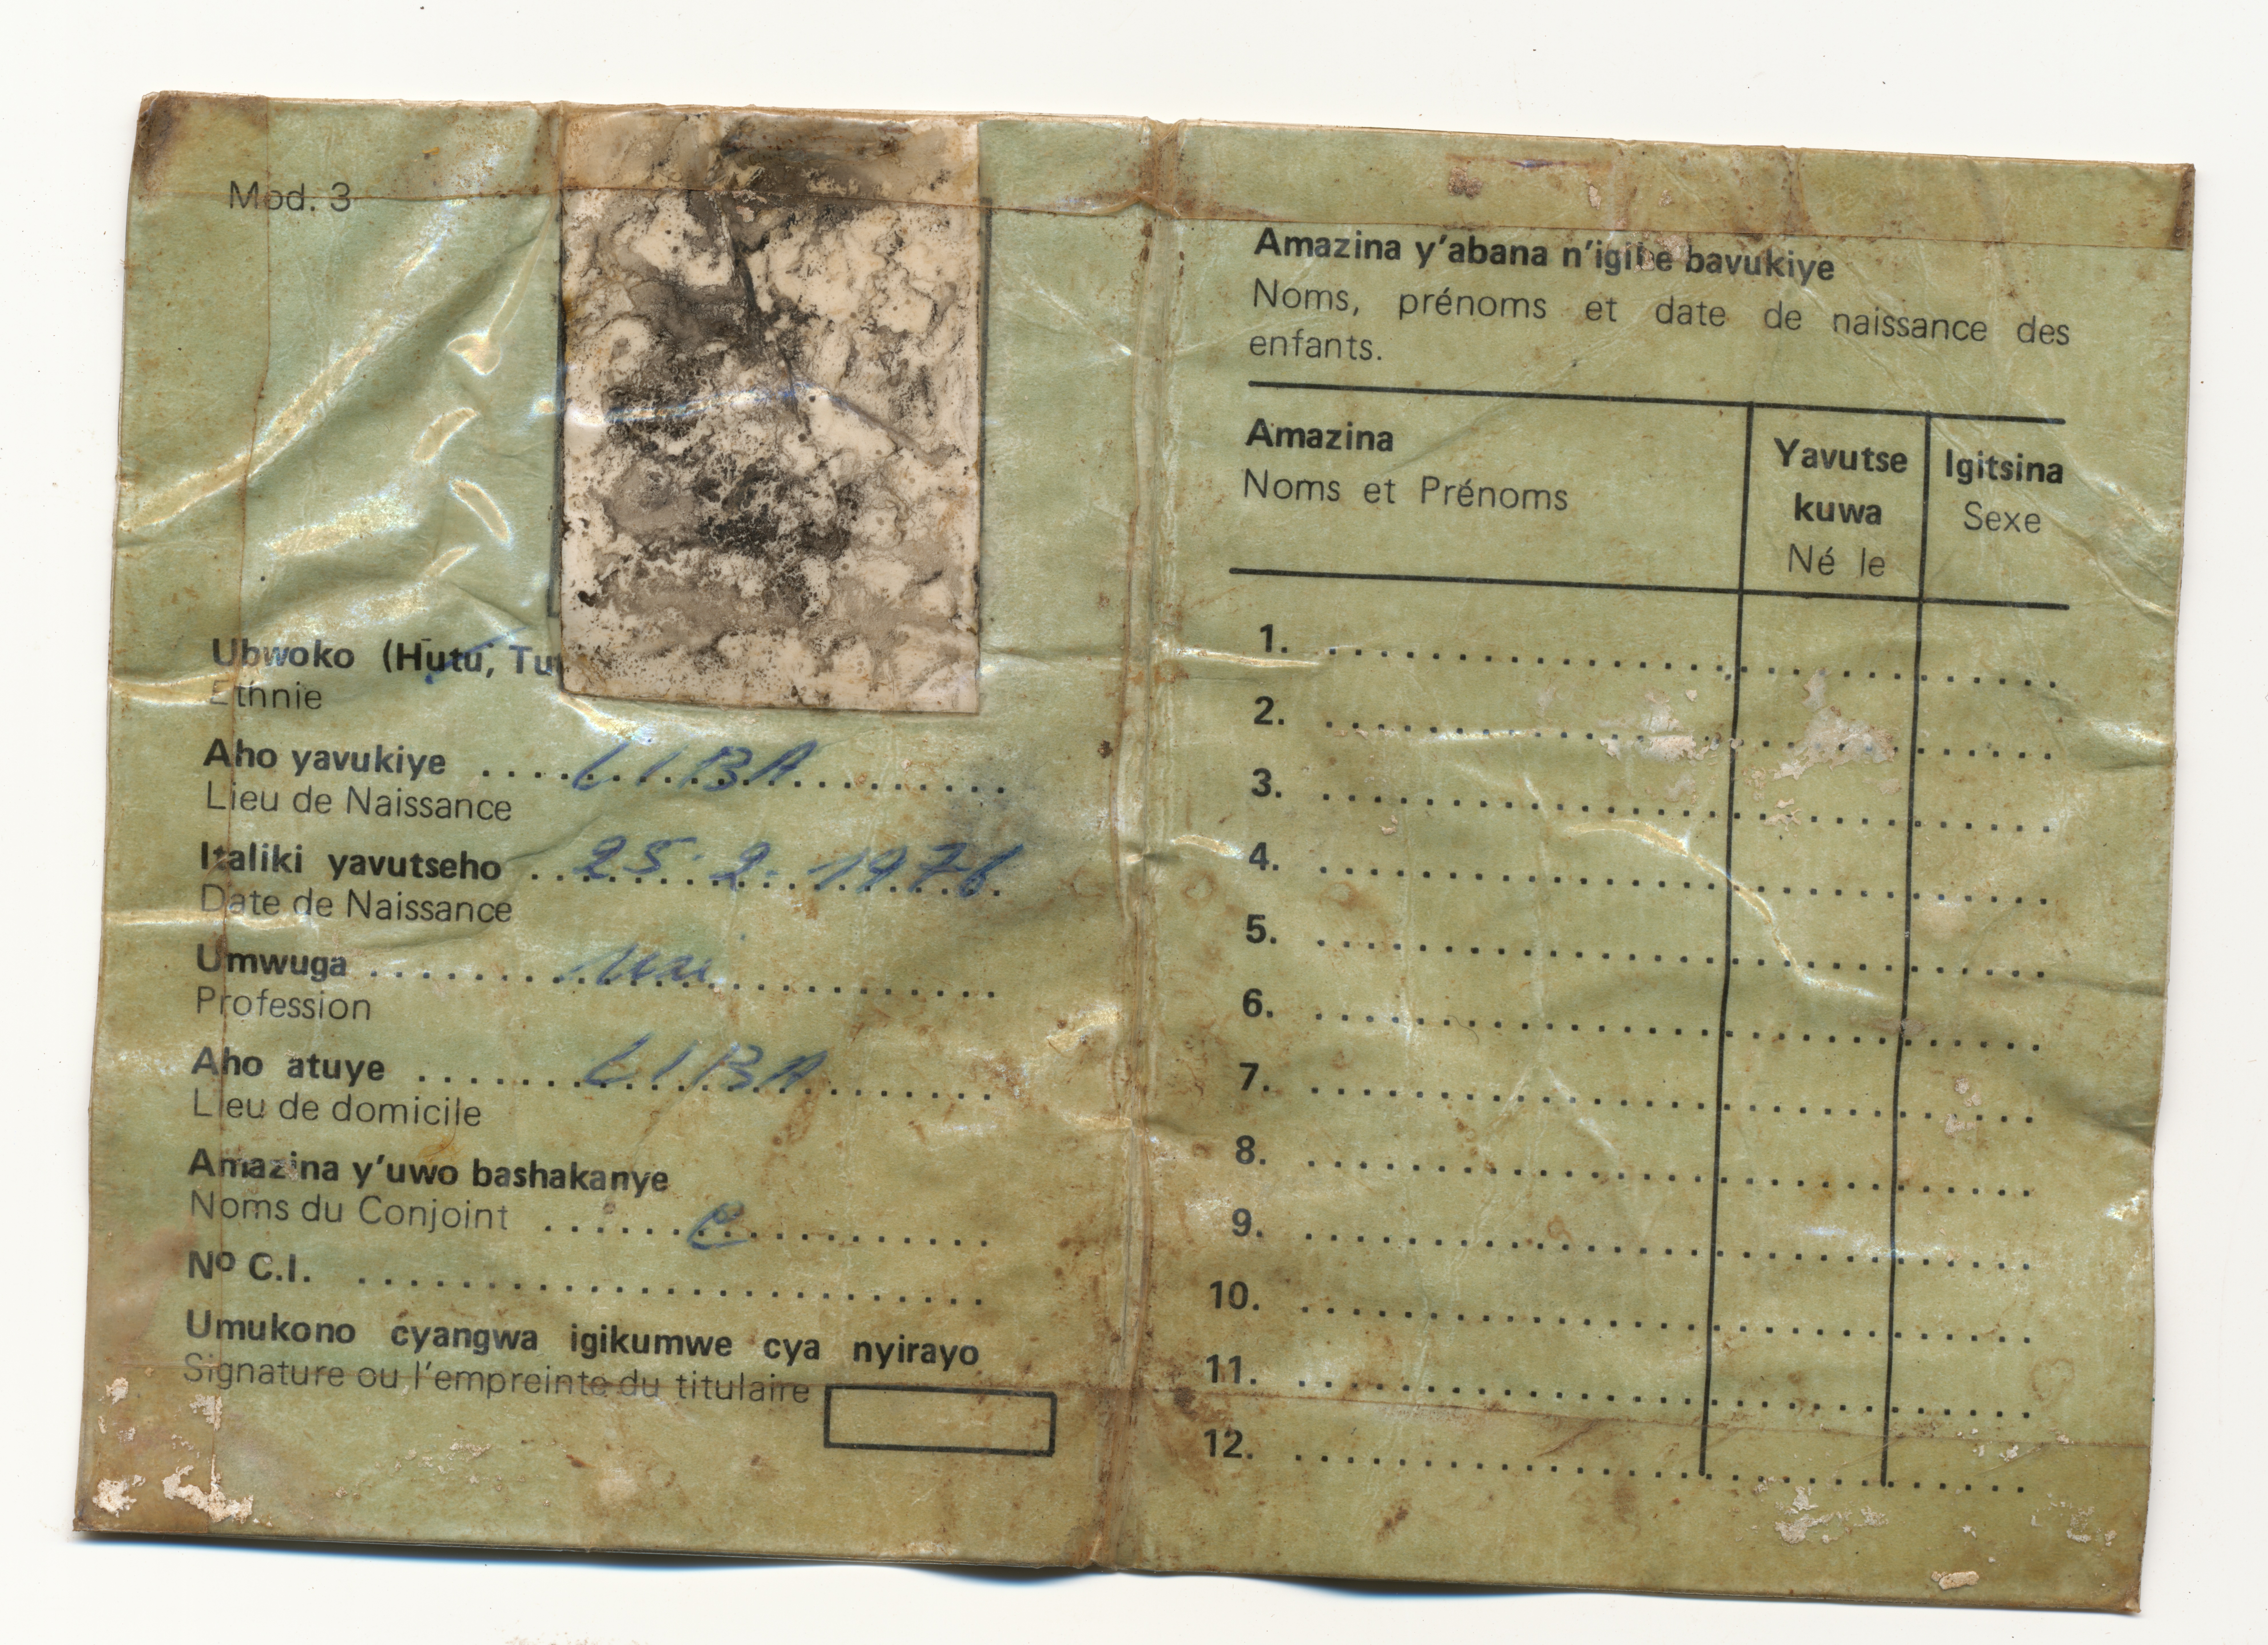 Mod. 3
Ubwoko (Hutu, Tu
Ethnie
Aho yavukiye .... LIBA
Lieu de Naissance
Italiki yavutseho .. 25.2.1976
Date de Naissance
Umwuga ........
Profession
Aho atuye ...... LIBA
Lieu de domicile
Amazina y'uwo bashakanye
Noms du Conjoint ......
Nº C.I. ........................
Umukono cyangwa igikumwe cya nyirayo
Signature ou l'empreinte du titulaire
Amazina y'abana n'igihe bavukiye
Noms, prénoms et date de naissance des
enfants.
Amazina
Noms et Prénoms
Yavutse
kuwa
Né le
Igitsina
Sexe
1.
2.
3.
4.
5.
6.
7.
8.
9.
10.
11.
12.